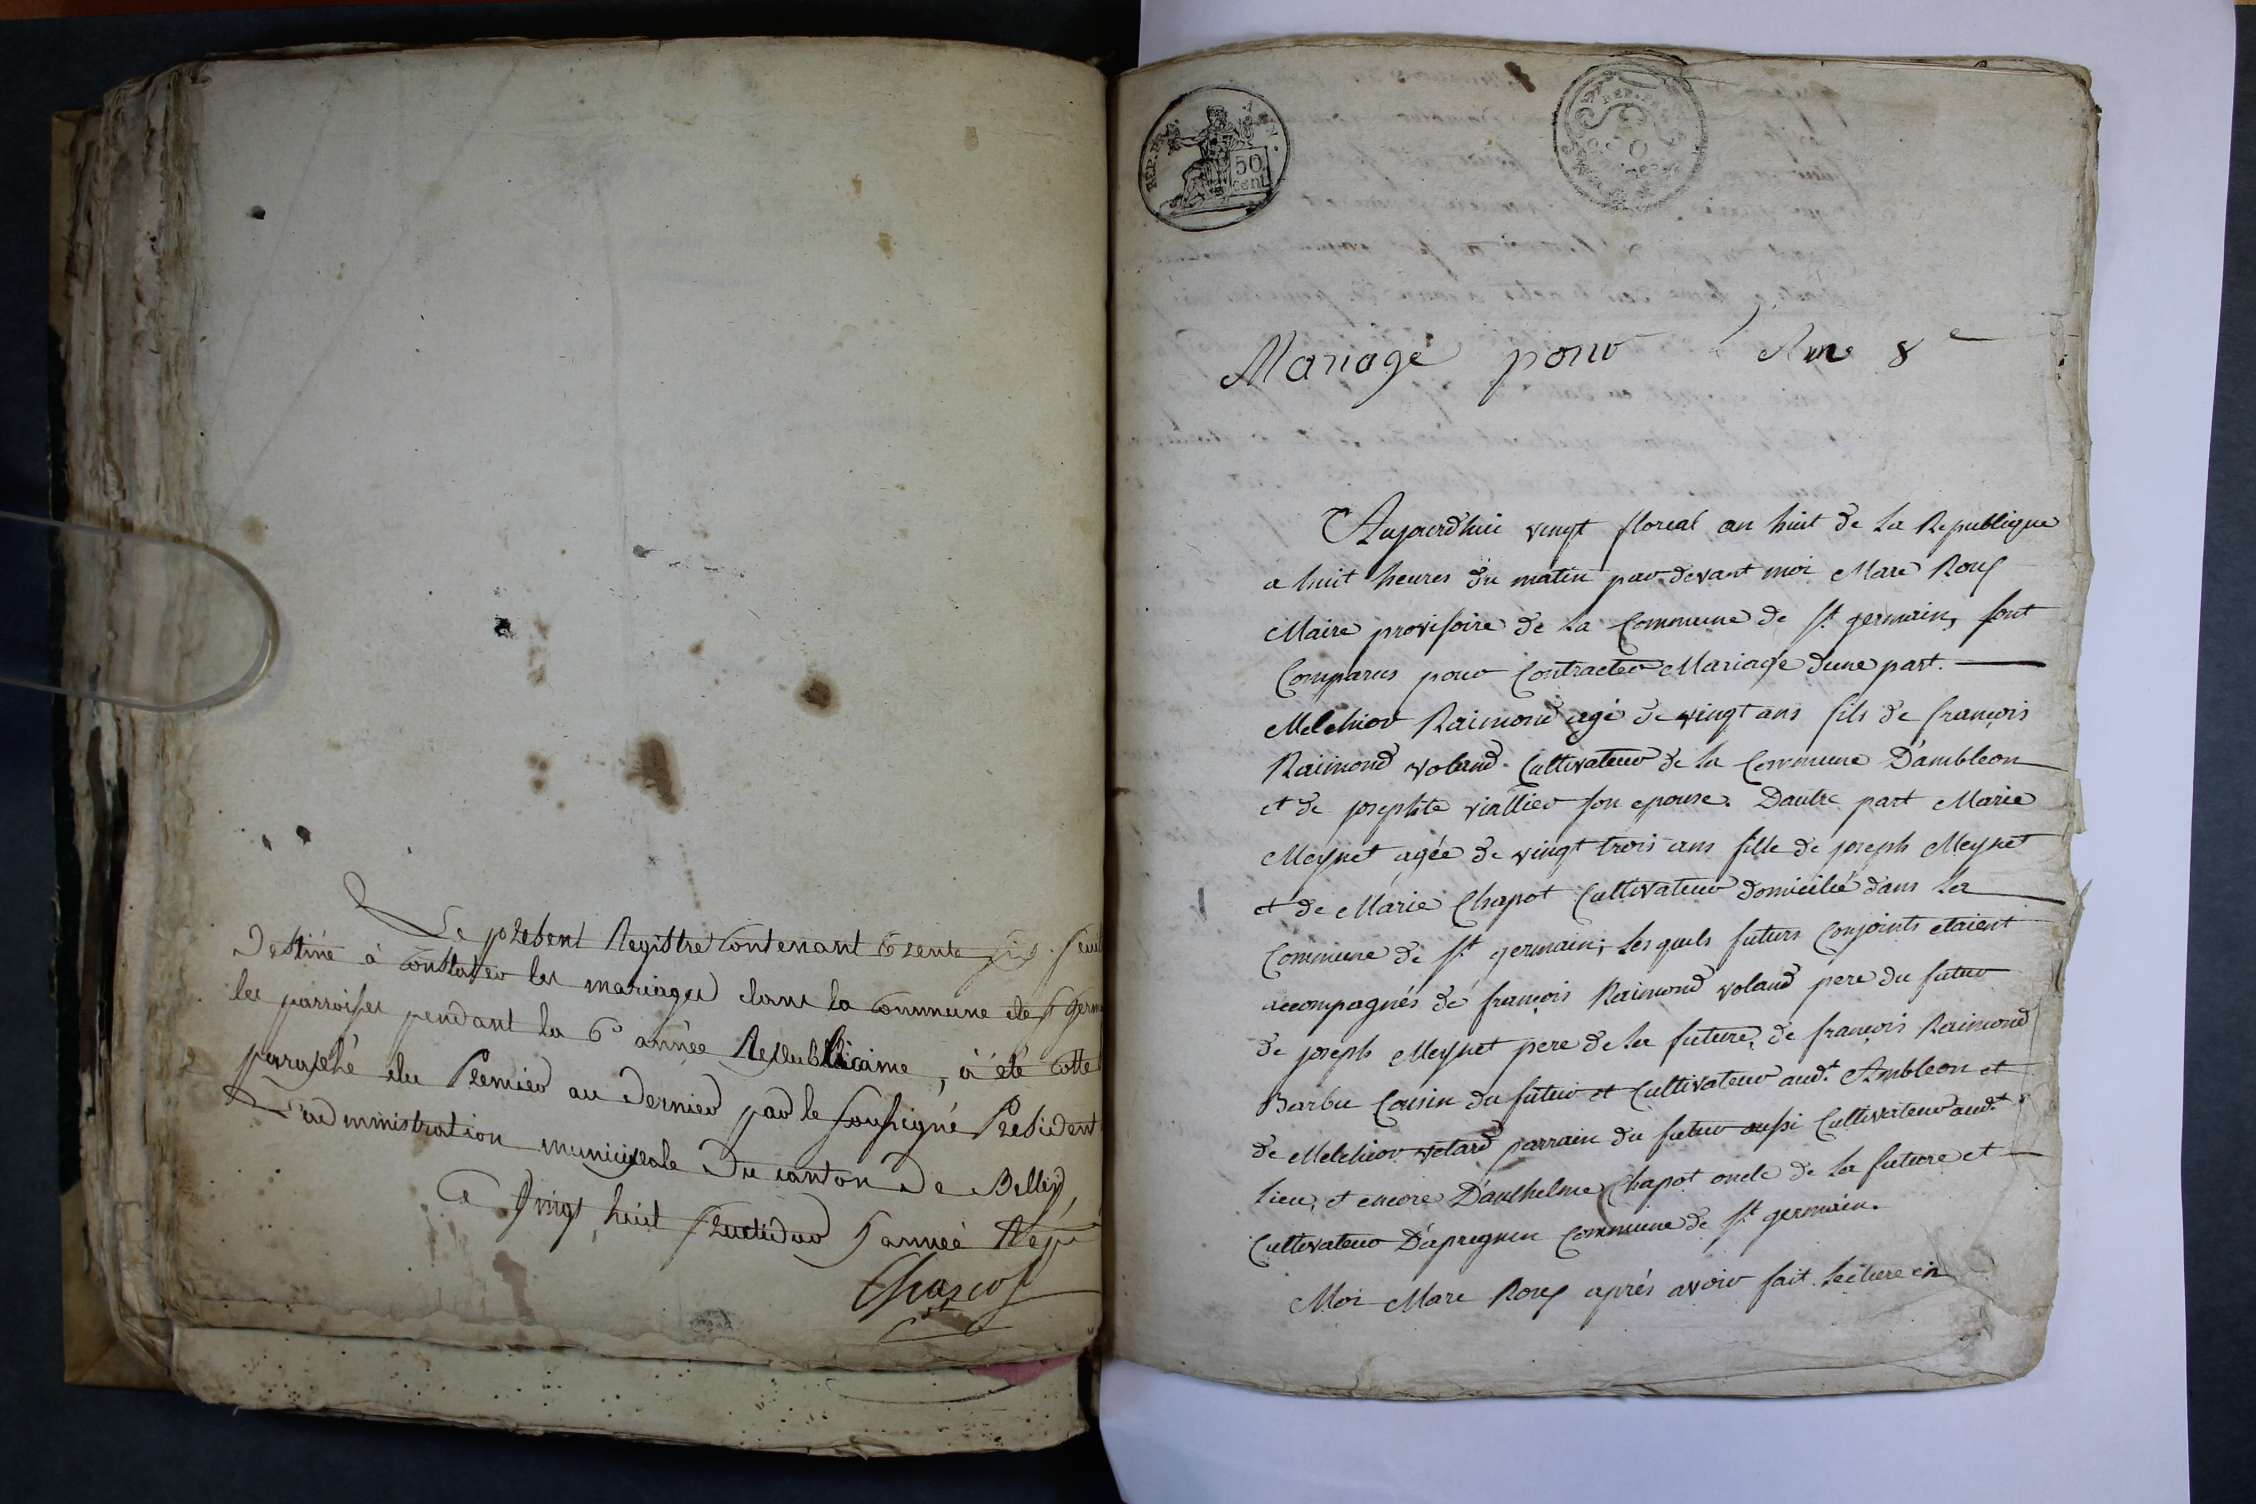 Le present Registre Contenant trente six feuil
Destiné à Constater les mariages dans la Commune de St germ
les parroisses pendant la 6e année Republicaine, à été Cotté
paraphé du Premier au Dernier par le Soussigné President
L'administration municipale Du canton De Belley,
A Vingt huit fructidor 5 année Repu
REP. FRA.
50
cent.
Mariage pour L'Ane 8e
Aujourdhui vingt floreal an huit de la Republique
a huit heures du matin par devant moi Marc Rouf
Maire provisoire de la Commune de St germain, sont
Comparus pour Contracter Mariage dune part.
Melchior Raimond agé de vingt ans fils de françois
Raimond voland Cultivateur de la Commune D'ambleon
et de josephte viallier son epouse. Dautre part Marie
Meynet agée de vingt trois ans fille de joseph Meynet
et de Marie Chapot Cultivateur domicilié dans la
Commune de St germain; les quels futurs Conjoints etaient
accompagnés de françois Raimond voland pere du futur
de joseph Meynet pere de la future, de françois Raimond
Barbu Cousin du futur et Cultivateur audt Ambleon et
de Melchior parrain du futur aussi Cultivateur audt
lieu, et encore D'anthelme Chapot oncle de la future et
Cultivateur D'apregnin Commune de St germain.
Moi Marc Rouf aprés avoir fait lecture en